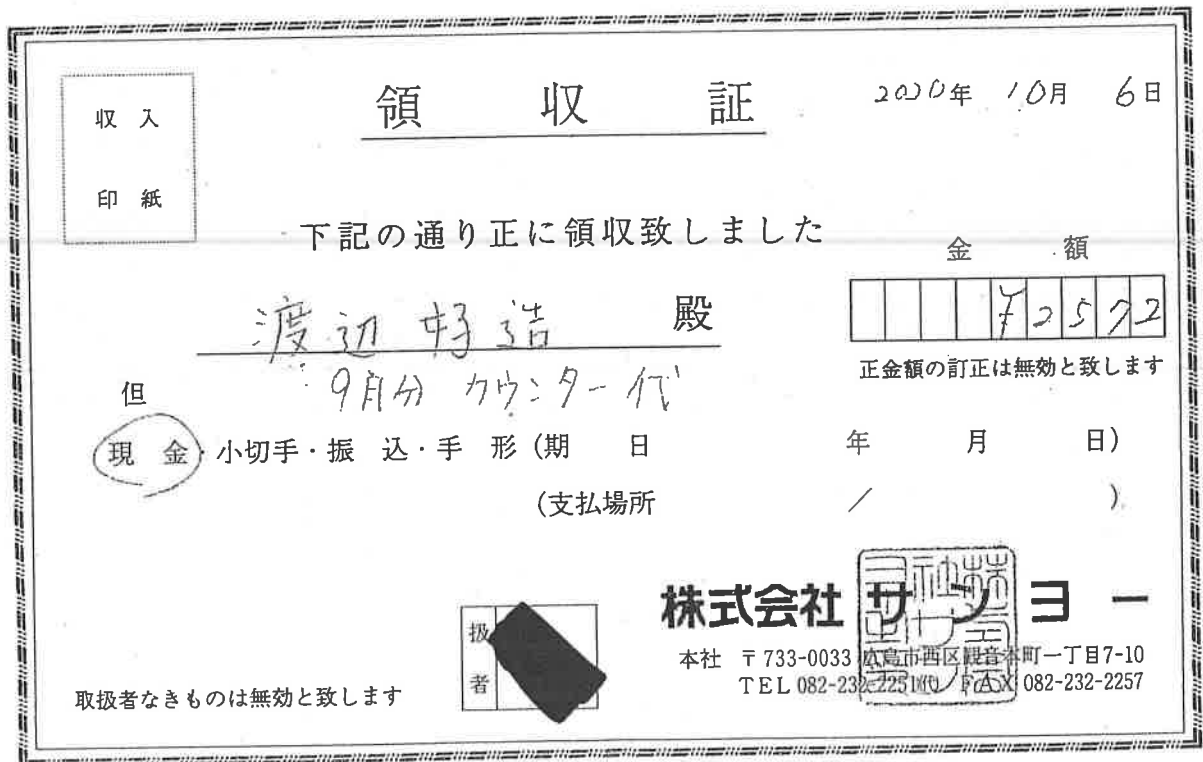 収入
印紙
領収証
2020年 10月 6日
下記の通り正に領収致しました
金額
¥2572
正金額の訂正は無効と致します
渡辺 好造 殿
但 9月分 カウンター代
現金・小切手・振込・手形(期日 年 月 日)
(支払場所 / )
株式会社 サンヨー
本社 〒733-0033 広島市西区観音本町一丁目7-10
TEL 082-232-2251(代) FAX 082-232-2257
扱者
取扱者なきものは無効と致します